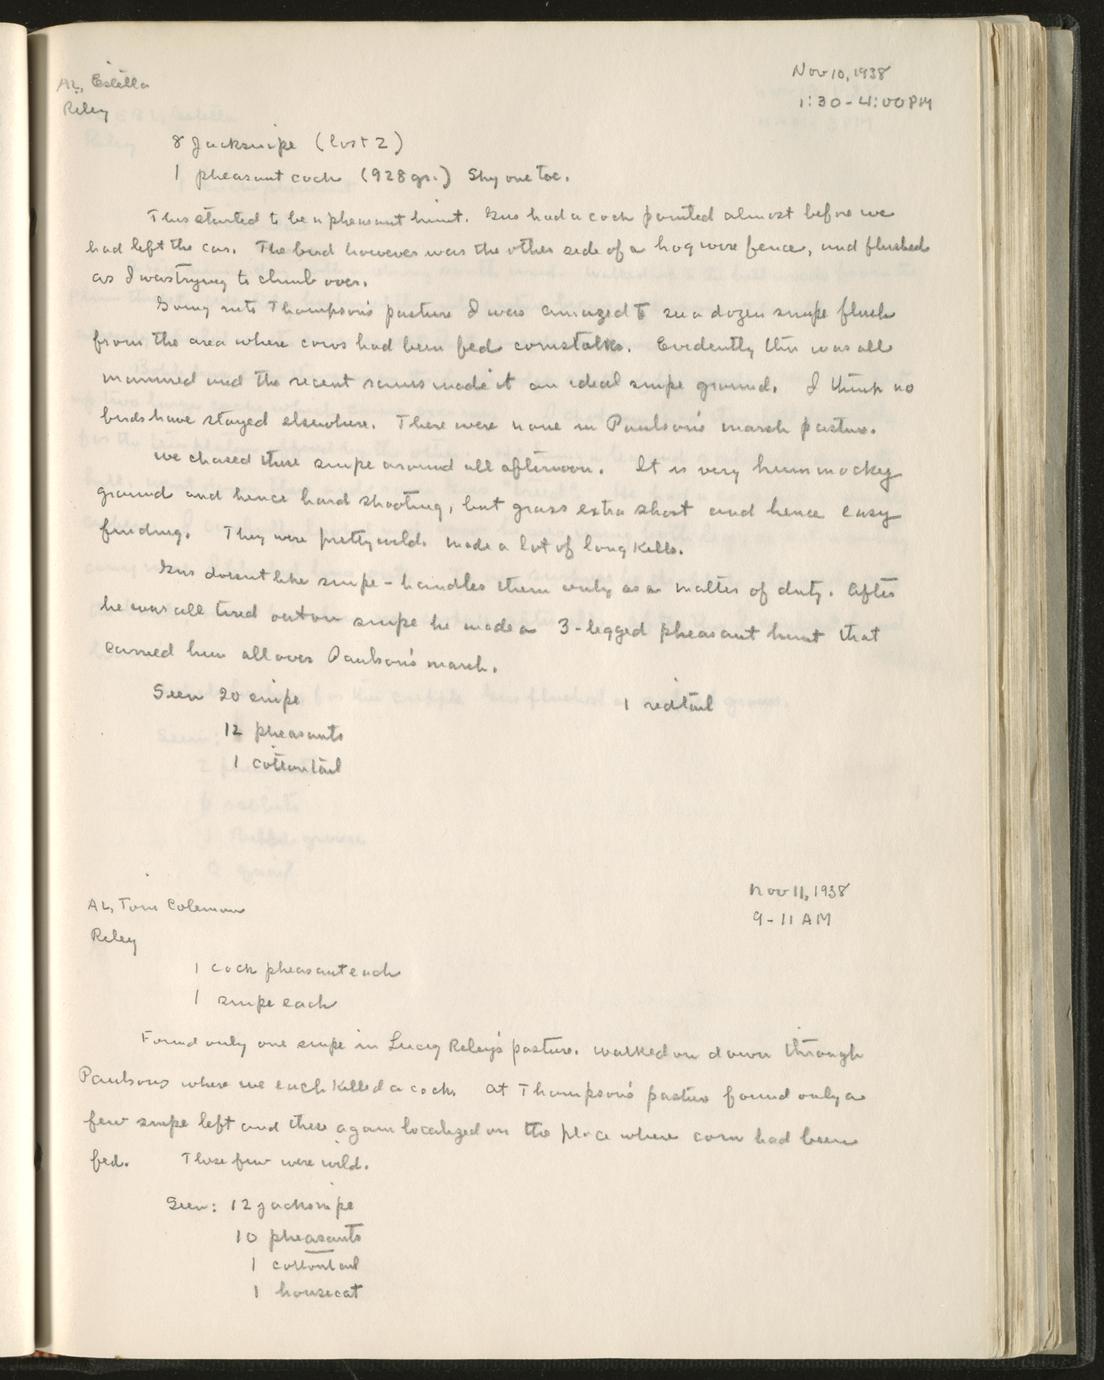 AL, Estella
Nov 10, 1938
Riley
1:30-4:00 PM
8 Jacksnipe (lost 2)
1 pheasant cock (928 gr.) Shy one toe.
This started to be a pheasant hunt. Gus had a cock pointed almost before we
had left the car. The bird however was the other side of a hog wire fence, and flushed
as I was trying to climb over.
Going into Thompson's pasture I was amazed to see a dozen snipe flush
from the area where cows had been fed cornstalks. Evidently this was all
manured and the recent rains made it an ideal snipe ground. I think no
birds have stayed elsewhere. There were none in Paulson's marsh pasture.
We chased these snipe around all afternoon. It is very hummocky
ground and hence hard shooting, but grass extra short and hence easy
finding. They were pretty wild. Made a lot of long kills.
Gus doesnt like snipe - handles them only as a matter of duty. After
he was all tired out on snipe he made a 3-legged pheasant hunt that
carried him all over Paulson's marsh.
Seen 20 snipe
1 redtail
12 pheasants
1 cottontail
AL, Tom Coleman
Nov 11, 1938
9-11 AM
Riley
1 cock pheasant each
1 snipe each
Found only one snipe in Lucy Riley's pasture. Walked on down through
Paulsons where we each killed a cock. At Thompson's pasture found only a
few snipe left and these again localized on the place where corn had been
fed. These few were wild.
Seen: 12 jacksnipe
10 pheasants
1 cottontail
1 housecat